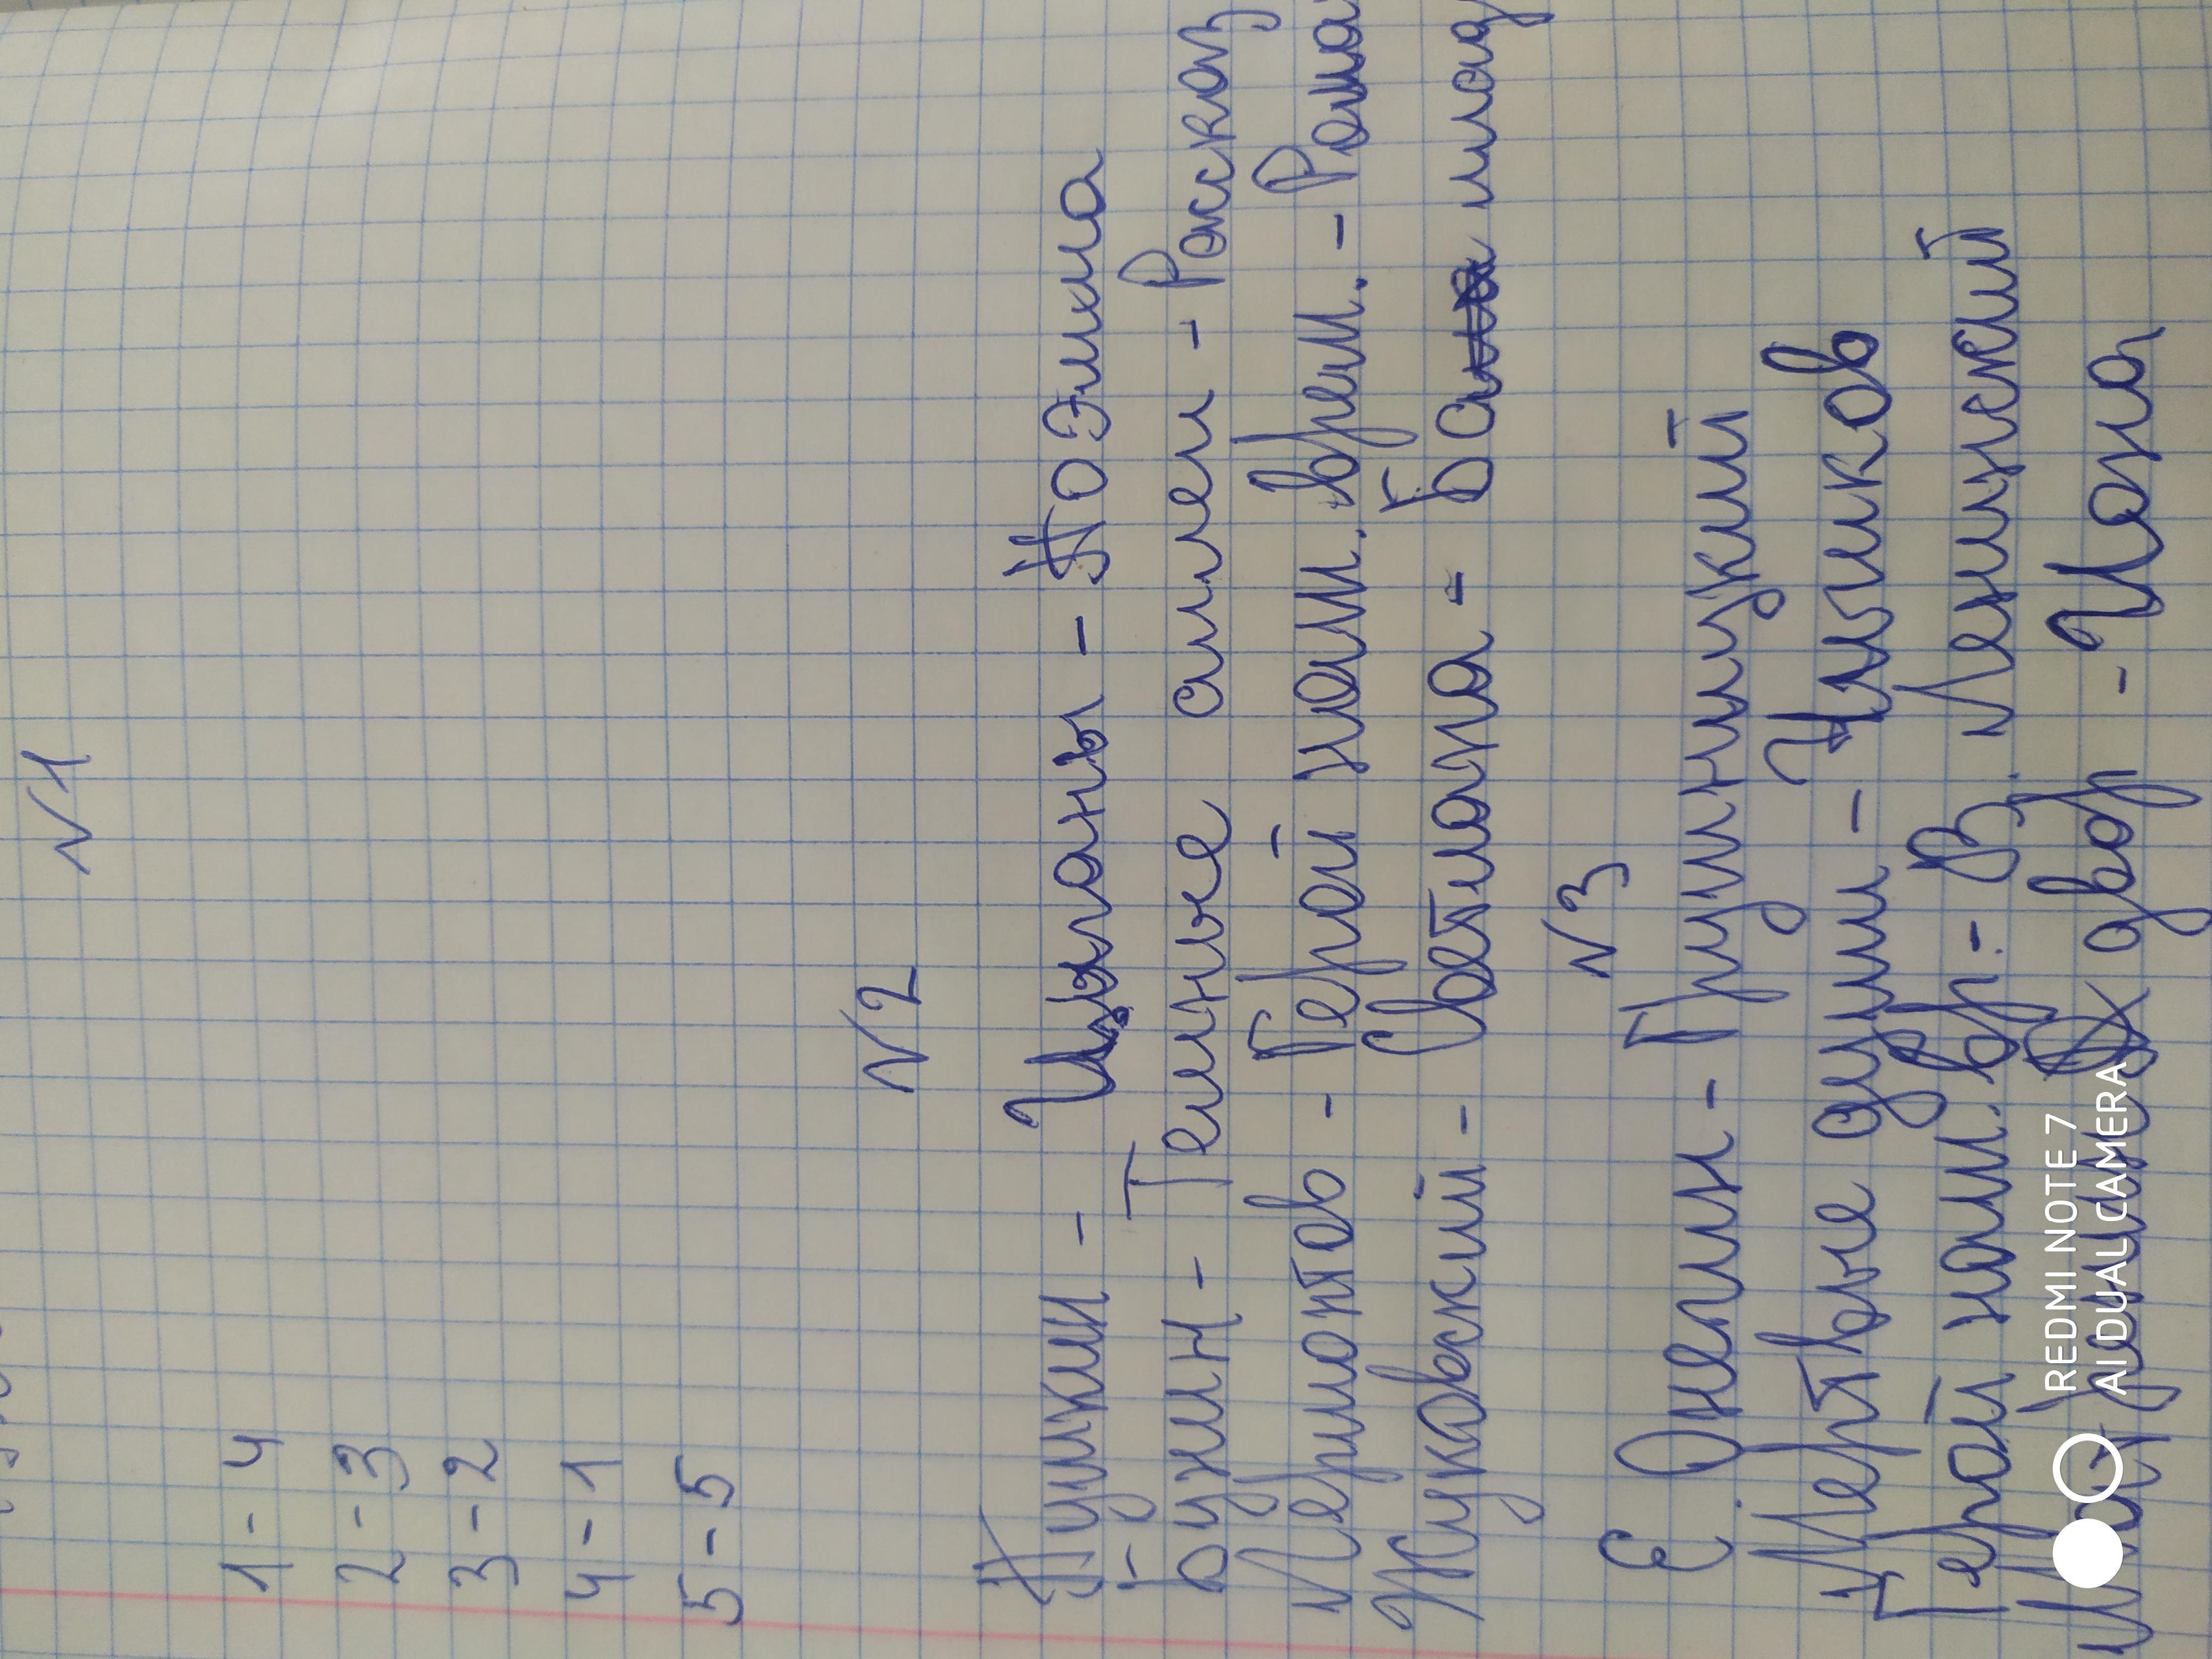 №1
1-4
2-3
3-2
4-1
5-5
№2
Пушкин - Цыганы - Поэмма
Бунин - Темные аллеи - Рассказ
Лермонтов - Герой наш. врем. - Рома
Жуковский - Светлана - Бал
№3
Е. Онегин - Гнушницкий
Мертвые души - Чичиков
Герой наш. вр. - В. Ленский
двор - Иона
REDMI NOTE 7
AI DUAL CAMERA